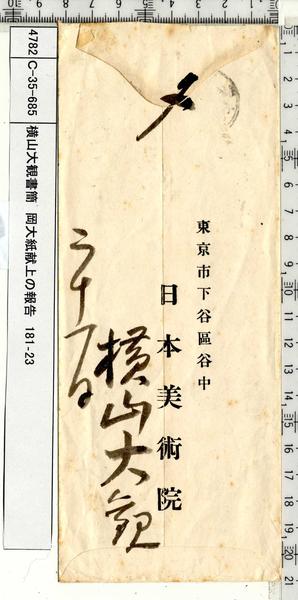 4782 C-35-685 横山大観書簡 岡大紙献上の報告 181-23
〆
東京市下谷區谷中
日本美術院
横山大観